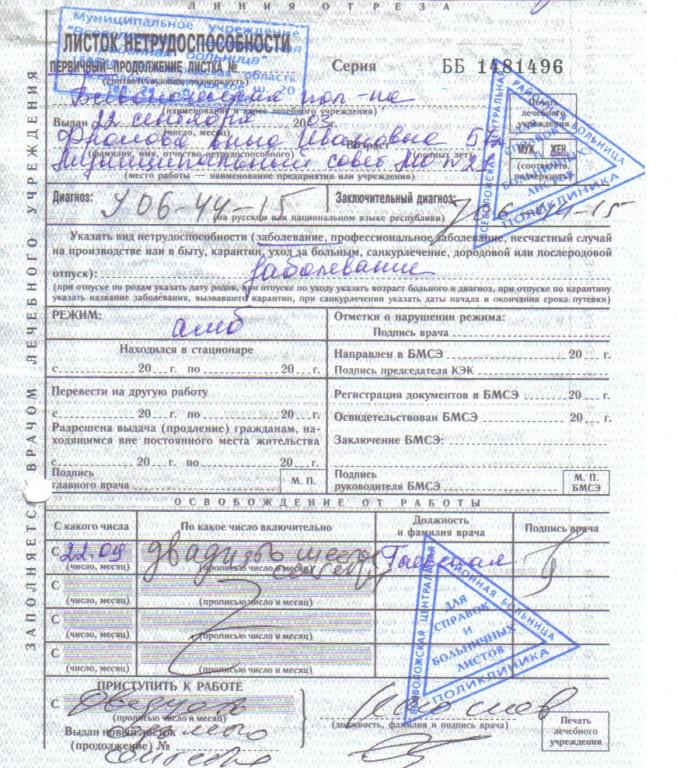 ЛИНИЯ ОТРЕЗА
Муниципальное учреждение
больница"
область
ЛИСТОК НЕТРУДОСПОСОБНОСТИ
ПЕРВИЧНЫЙ-ПРОДОЛЖЕНИЕ ЛИСТКА №
(соответствующее подчеркнуть)
Серия ББ 1481496
(наименование и адрес лечебного учреждения)
Выдан 22 сентября 2003
(число, месяц)
Фролова Анна Ивановна
(фамилия, имя, отчество нетрудоспособного) Возраст (полных лет)
Муниципальный совет МО
(место работы — наименование предприятия или учреждения)
Печать лечебного учреждения
МУЖ. ЖЕН.
(соответств. подчеркнуть)
ВСЕВОЛОЖСКАЯ ЦЕНТРАЛЬНАЯ РАЙОННАЯ БОЛЬНИЦА
ДЛЯ СПРАВОК И БОЛЬНИЧНЫХ ЛИСТОВ
ПОЛИКЛИНИКА
ЗАПОЛНЯЕТСЯ ВРАЧОМ ЛЕЧЕБНОГО УЧРЕЖДЕНИЯ
Диагноз: J06-44-15 Заключительный диагноз: J06-44-15
(на русском или национальном языке республики)
Указать вид нетрудоспособности (заболевание, профессиональное заболевание, несчастный случай
на производстве или в быту, карантин, уход за больным, санкурлечение, дородовой или послеродовой
отпуск): заболевание
(при отпуске по родам указать дату родов, при отпуске по уходу указать возраст больного и диагноз, при отпуске по карантину
указать название заболевания, вызвавшего карантин, при санкурлечении указать даты начала и окончания срока путевки)
РЕЖИМ: амб
Отметки о нарушении режима:
Подпись врача
Находился в стационаре
с 20 г. по 20 г.
Направлен в БМСЭ 20 г.
Подпись председателя КЭК
Перевести на другую работу
с 20 г. по 20 г.
Регистрация документов в БМСЭ 20 г.
Освидетельствован БМСЭ 20 г.
Разрешена выдача (продление) гражданам, на-
ходящимся вне постоянного места жительства
с 20 г. по 20 г.
Заключение БМСЭ:
Подпись
главного врача
М. П.
Подпись
руководителя БМСЭ
М. П.
БМСЭ
ОСВОБОЖДЕНИЕ ОТ РАБОТЫ
С какого числа По какое число включительно Должность и фамилия врача Подпись врача
С 22.09 двадцать шесть
(число, месяц) (прописью число и месяц)
С
(число, месяц) (прописью число и месяц)
С
(число, месяц) (прописью число и месяц)
С
(число, месяц) (прописью число и месяц)
ВСЕВОЛОЖСКАЯ ЦЕНТРАЛЬНАЯ РАЙОННАЯ БОЛЬНИЦА
ДЛЯ СПРАВОК И БОЛЬНИЧНЫХ ЛИСТОВ
ПОЛИКЛИНИКА
ПРИСТУПИТЬ К РАБОТЕ
С двадцать
(прописью число и месяц)
(должность, фамилия и подпись врача)
Выдан новый листок
(продолжение) №
Печать лечебного учреждения